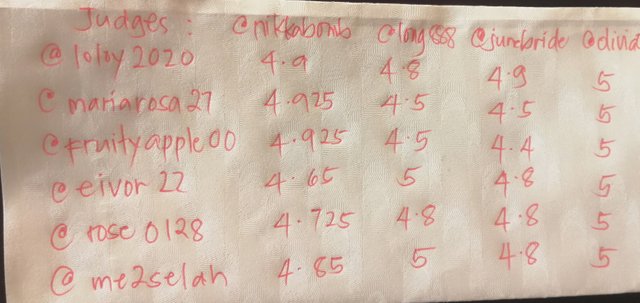 Judges: @nikkabomb @long888 @junebride @divid
@loloy2020 4.9 4.8 4.9 5
@mariarosa27 4.925 4.5 4.5 5
@fruityapple00 4.925 4.5 4.4 5
@eivor22 4.65 5 4.8 5
@rose0128 4.725 4.8 4.8 5
@me2selah 4.85 5 4.8 5